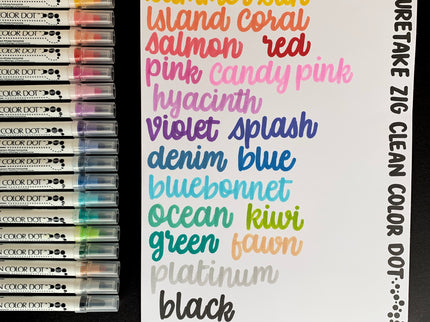 island coral
salmon red
pink candy pink
hyacinth
violet splash
denim blue
bluebonnet
ocean kiwi
green fawn
platinum
black
ZIG CLEAN COLOR DOT
COLOR DOT
COLOR DOT
COLOR DOT
COLOR DOT
COLOR DOT
COLOR DOT
COLOR DOT
COLOR DOT
COLOR DOT
COLOR DOT
COLOR DOT
COLOR DOT
COLOR DOT
COLOR DOT